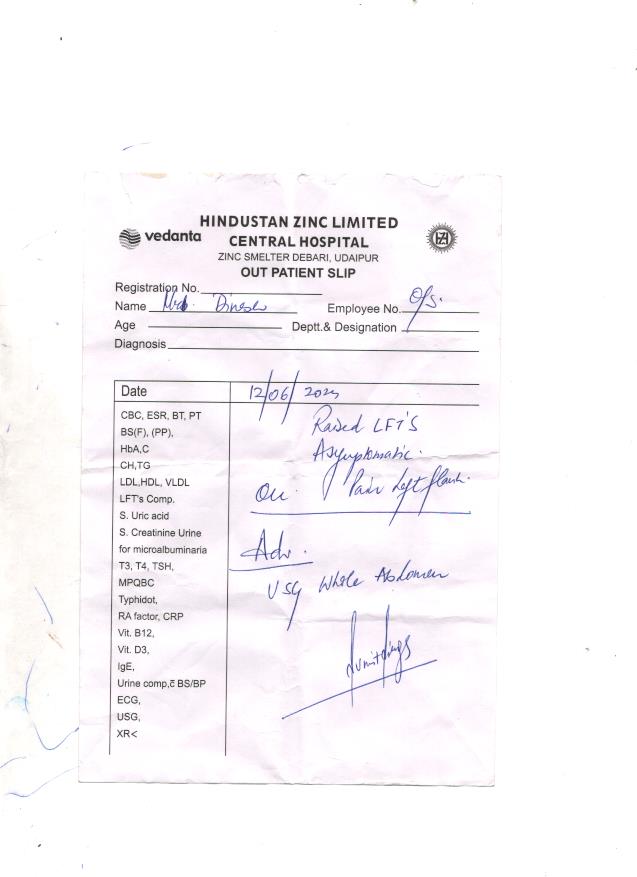 vedanta
HINDUSTAN ZINC LIMITED
CENTRAL HOSPITAL
HZL
ZINC SMELTER DEBARI, UDAIPUR
OUT PATIENT SLIP
Registration No.
Name Dinesh Employee No. O/s.
Age Deptt.& Designation
Diagnosis
Date 12/06/2025
CBC, ESR, BT, PT
BS(F), (PP),
HbA,C
CH,TG
LDL,HDL, VLDL
LFT's Comp.
S. Uric acid
S. Creatinine Urine
for microalbuminaria
T3, T4, TSH,
MPQBC
Typhidot,
RA factor, CRP
Vit. B12,
Vit. D3,
IgE,
Urine comp,c̄ BS/BP
ECG,
USG,
XR<
Raised LFT'S
Asymptomatic.
Pain Left flank.
Adv.
USG Whole Abdomen